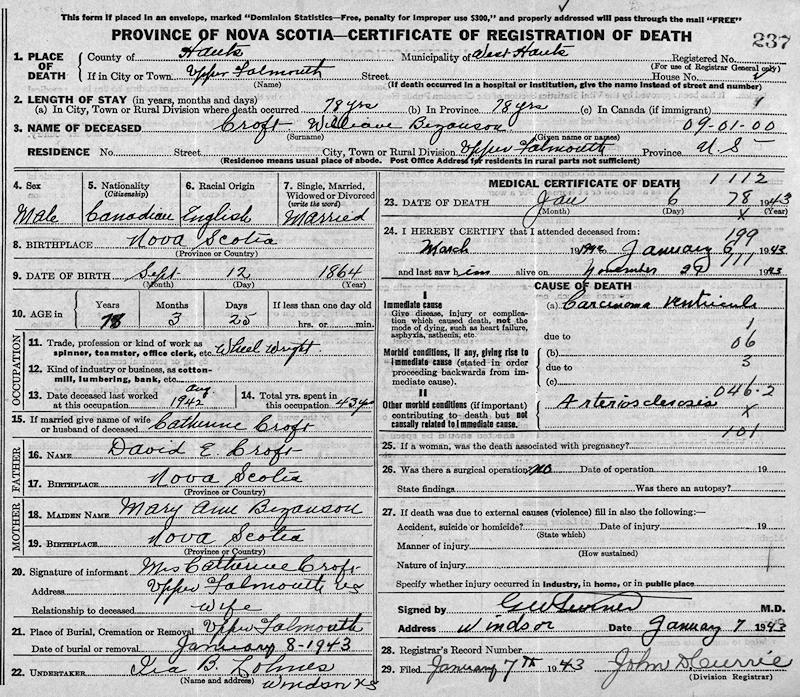 This form if placed in an envelope, marked "Dominion Statistics—Free, penalty for improper use $300," and properly addressed will pass through the mail "FREE"
PROVINCE OF NOVA SCOTIA—CERTIFICATE OF REGISTRATION OF DEATH
237
1. PLACE OF DEATH
County of Hants Municipality of West Hants Registered No.
(For use of Registrar General only)
If in City or Town Upper Falmouth Street House No.
(Name) (If death occurred in a hospital or institution, give the name instead of street and number)
2. LENGTH OF STAY (in years, months and days)
(a) In City, Town or Rural Division where death occurred 78 yrs (b) In Province 78 yrs (c) In Canada (if immigrant)
3. NAME OF DECEASED Croft William Bezanson 09-01-00
(Surname) (Given name or names)
RESIDENCE No. Street City, Town or Rural Division Upper Falmouth Province N.S
(Residence means usual place of abode. Post Office Address for residents in rural parts not sufficient)
4. Sex
Male
5. Nationality
(Citizenship)
Canadian
6. Racial Origin
English
7. Single, Married, Widowed or Divorced
(write the word)
Married
8. BIRTHPLACE Nova Scotia
(Province or Country)
9. DATE OF BIRTH Sept 12 1864
(Month) (Day) (Year)
10. AGE in
Years Months Days If less than one day old
78 3 25 hrs. or min.
OCCUPATION
11. Trade, profession or kind of work as spinner, teamster, office clerk, etc. Wheel Wright
12. Kind of industry or business, as cotton-mill, lumbering, bank, etc.
13. Date deceased last worked at this occupation Aug 1942
14. Total yrs. spent in this occupation 43 yrs
15. If married give name of wife or husband of deceased Catherine Croft
FATHER
16. NAME David E. Croft
17. BIRTHPLACE Nova Scotia
(Province or Country)
MOTHER
18. MAIDEN NAME Mary Ann Bezanson
19. BIRTHPLACE Nova Scotia
(Province or Country)
20. Signature of informant Mrs Catherine Croft
Address Upper Falmouth NS
Relationship to deceased Wife
21. Place of Burial, Cremation or Removal Upper Falmouth
Date of burial or removal January 8-1943
22. UNDERTAKER Ira B. Lohnes
(Name and address) Windsor NS
MEDICAL CERTIFICATE OF DEATH 1112
23. DATE OF DEATH Jan 6 78 1943
(Month) (Day) x (Year)
24. I HEREBY CERTIFY that I attended deceased from: 199
March 1942 January 6 1943
and last saw him alive on November 29 111 1943
CAUSE OF DEATH
I
Immediate cause
Give disease, injury or complication which caused death, not the mode of dying, such as heart failure, asphyxia, asthenia, etc.
(a) Carcinoma ventriculi
1
due to
06
Morbid conditions, if any, giving rise to immediate cause (stated in order proceeding backwards from immediate cause).
(b)
3
due to
(c)
046.2
II
Other morbid conditions (if important) contributing to death but not causally related to immediate cause.
Arteriosclerosis
x
101
25. If a woman, was the death associated with pregnancy?
26. Was there a surgical operation? no Date of operation 19
State findings Was there an autopsy?
27. If death was due to external causes (violence) fill in also the following:—
Accident, suicide or homicide? Date of injury 19
(State which)
Manner of injury
(How sustained)
Nature of injury
Specify whether injury occurred in industry, in home, or in public place
Signed by M.D.
Address Windsor Date January 7 1943
28. Registrar's Record Number
29. Filed January 7th 1943 John D Currie
(Division Registrar)